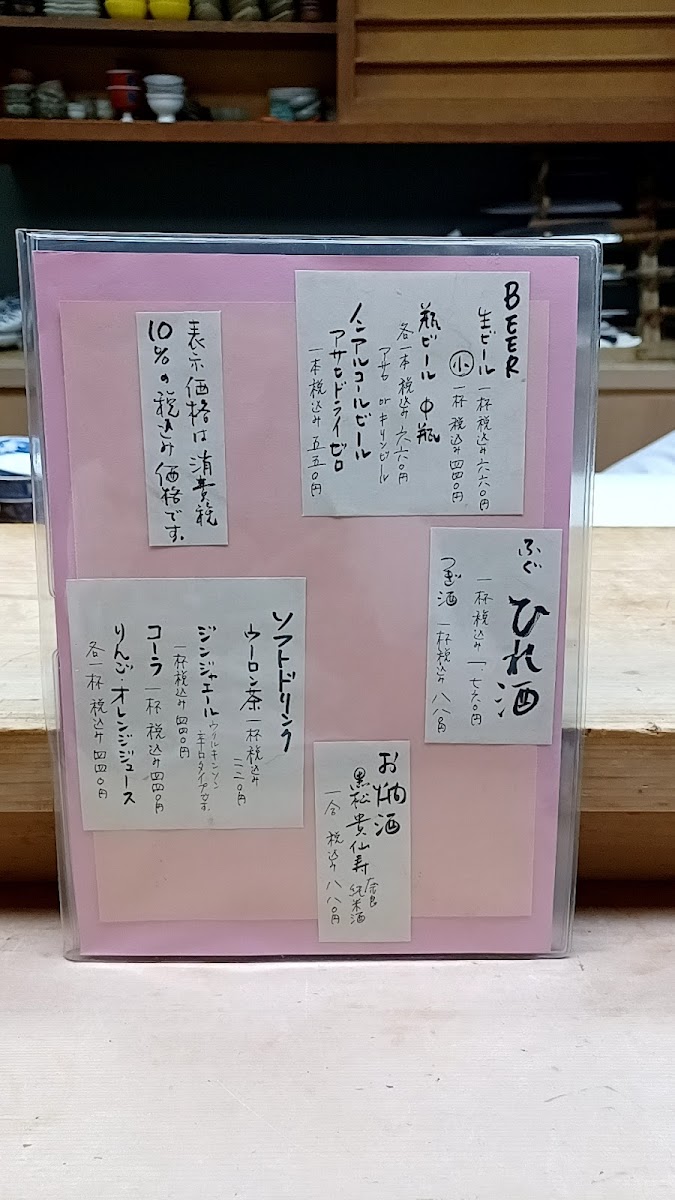 BEER
生ビール 一杯 税込み 六六〇円
㊙小 一杯 税込み 四四〇円
瓶ビール 中瓶
各一本 税込み 六六〇円
アサヒ or キリンビール
ノンアルコールビール
アサヒドライゼロ
一本 税込み 五五〇円
表示価格は消費税
10%の税込み価格です。
ふぐ ひれ酒
一杯 税込み 一.七六〇円
つぎ酒 一杯 税込み 八八〇円
ソフトドリンク
ウーロン茶 一杯 税込み
二二〇円
ジンジャエール ウィルキンソン
辛口タイプです。
一杯 税込み 四四〇円
コーラ 一杯 税込み 四四〇円
りんご・オレンジジュース
各一杯 税込み 四四〇円
お燗酒
黒松貴仙寿 奈良
純米酒
一合 税込み 八八〇円